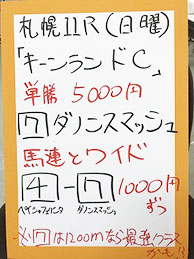 札幌11R(日曜)
「キーンランドC」
単勝 5000円
7 ダノンスマッシュ
馬連とワイド
4-7 1000円
ペイシャフェリシタ ダノンスマッシュ ずつ
※7は1200mなら最強クラス
かも!!